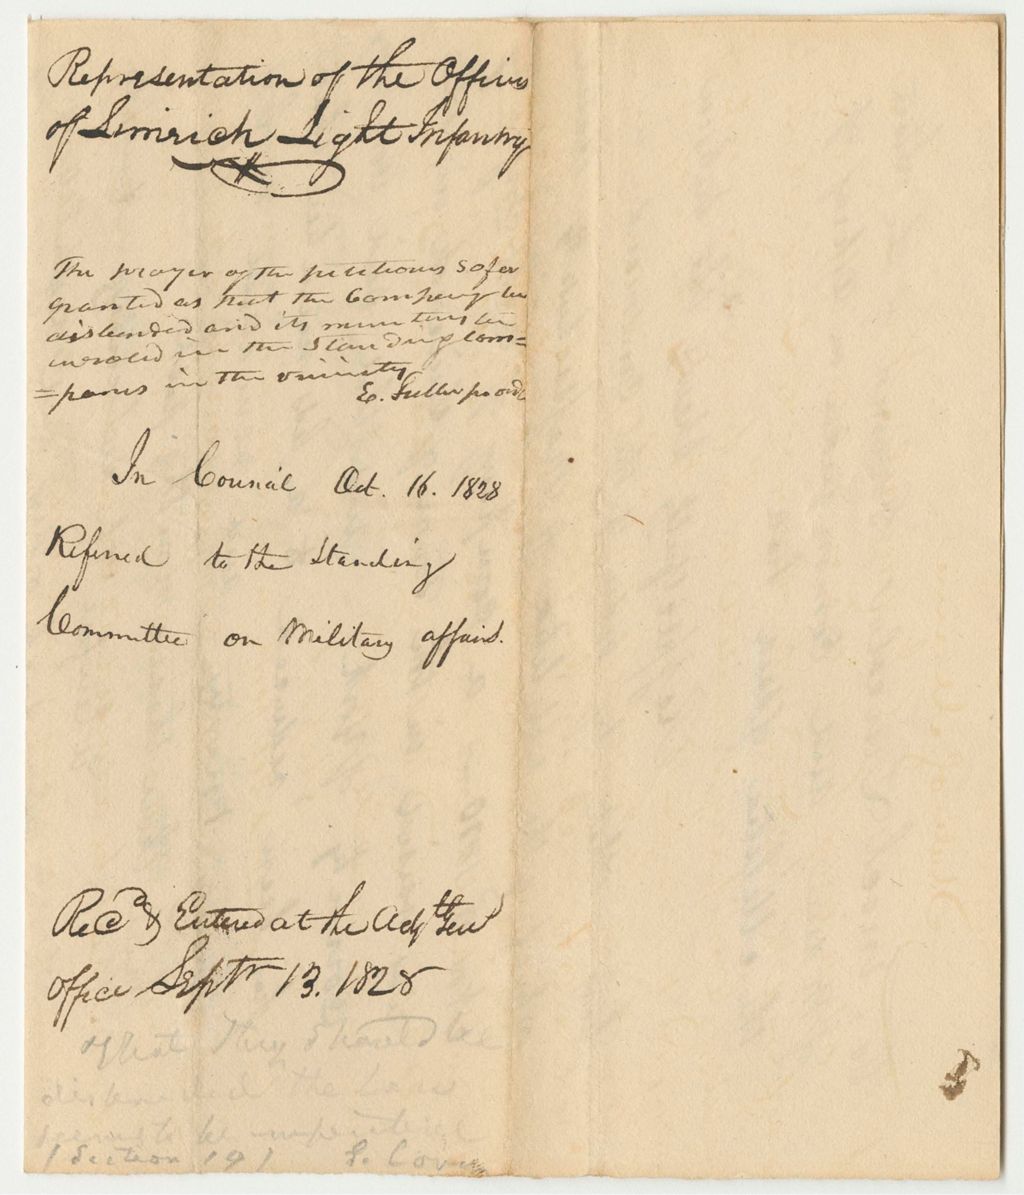 Representation of the Officers
of Limrich Light Infantry
The prayer of the petitions so far
granted as that the Company be
disbanded and its members be
inroled in the Standing Com=
=panies in the vicinity
E.
In Council Oct. 16. 1828
Referred to the Standing
Committee on Military affairs.
Recd & Entered at the Adjt Genl
office Septr 13. 1828
that They Should be
the Law
to be
Section 19